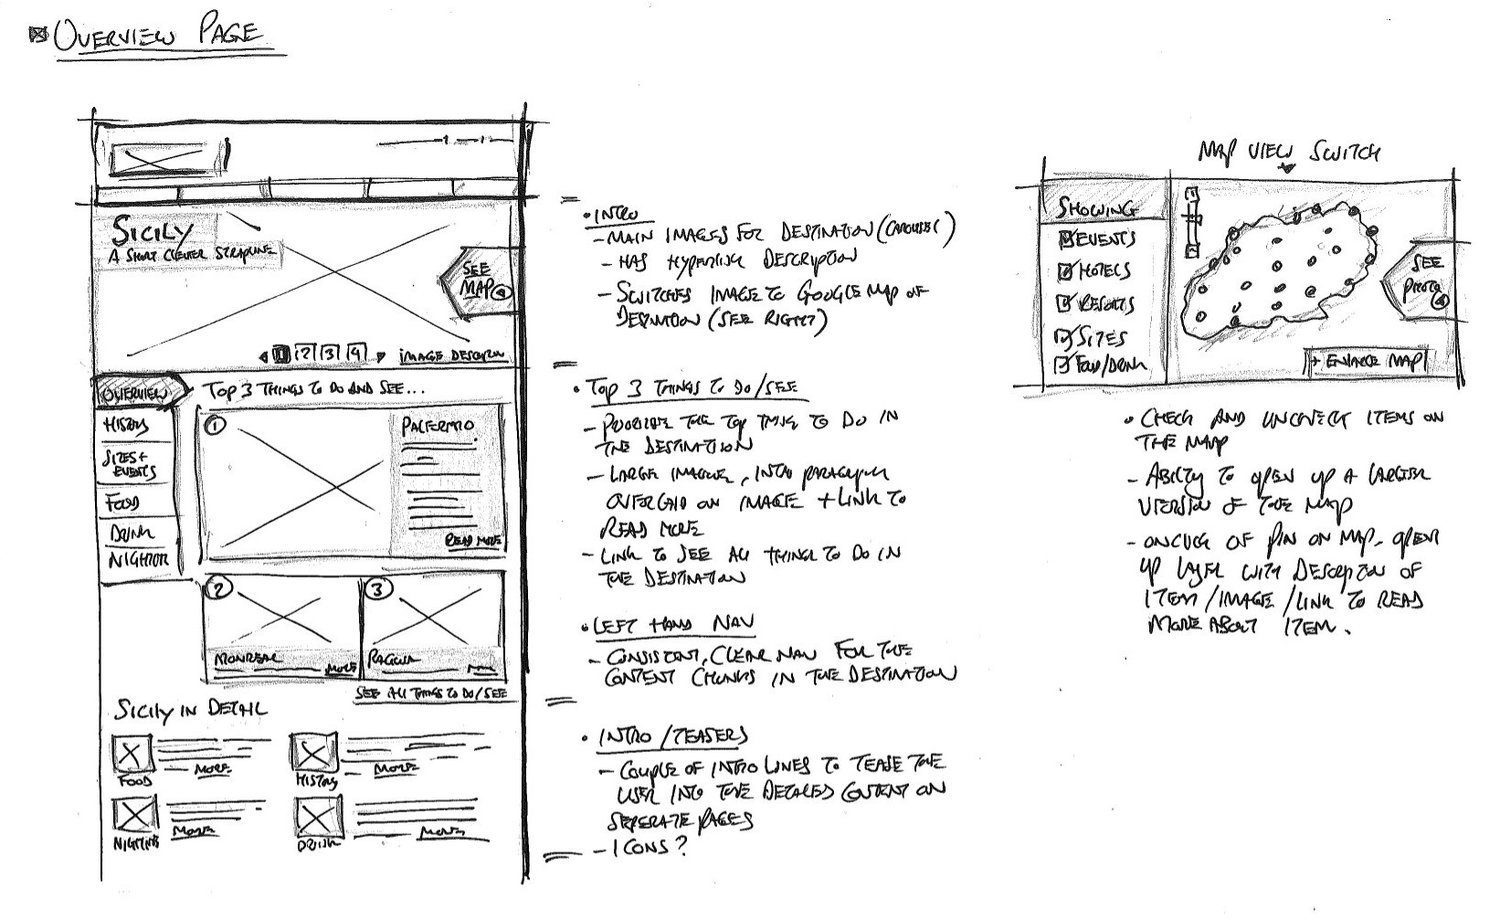 OVERVIEW PAGE
SICILY
A SHORT CLEVER STRAPLINE
SEE
MAP
1 2 3 4
IMAGE DESCRIPTION
OVERVIEW
HISTORY
SITES +
EVENTS
FOOD
DRINK
NIGHTLIFE
TOP 3 THINGS TO DO AND SEE...
1
PALERMO
READ MORE
2
MONREAL
MORE
3
RAGUSA
SEE ALL THINGS TO DO/SEE
SICILY IN DETAIL
FOOD
MORE
HISTORY
MORE
NIGHTLIFE
MORE
DRINK
MORE
• INTRO
- MAIN IMAGES FOR DESTINATION (CAROUSEL)
- HAS HYPERLINK DESCRIPTION
- SWITCHES IMAGE TO GOOGLE MAP OF
DESTINATION (SEE RIGHT)
• TOP 3 THINGS TO DO/SEE
- PROMOTE THE TOP THING TO DO IN
THE DESTINATION
- LARGE IMAGE, INTRO PARAGRAPH
OVERLAID ON IMAGE + LINK TO
READ MORE
- LINK TO SEE ALL THINGS TO DO IN
THE DESTINATION
• LEFT HAND NAV
- CONSISTENT, CLEAR NAV FOR THE
CONTENT CHUNKS IN THE DESTINATION
• INTRO/TEASERS
- COUPLE OF INTRO LINES TO TEASE THE
USER INTO THE DETAILED CONTENT ON
SEPERATE PAGES
- ICONS?
MAP VIEW SWITCH
SHOWING
EVENTS
HOTELS
RESORTS
SITES
FOOD/DRINK
SEE
PHOTO
+ ENLARGE MAP
• CHECK AND UNCHECK ITEMS ON
THE MAP
- ABILITY TO OPEN UP A LARGER
VERSION OF THE MAP
- ONCLICK OF PIN ON MAP, OPEN
UP LAYER WITH DESCRIPTION OF
ITEM/IMAGE/LINK TO READ
MORE ABOUT ITEM.